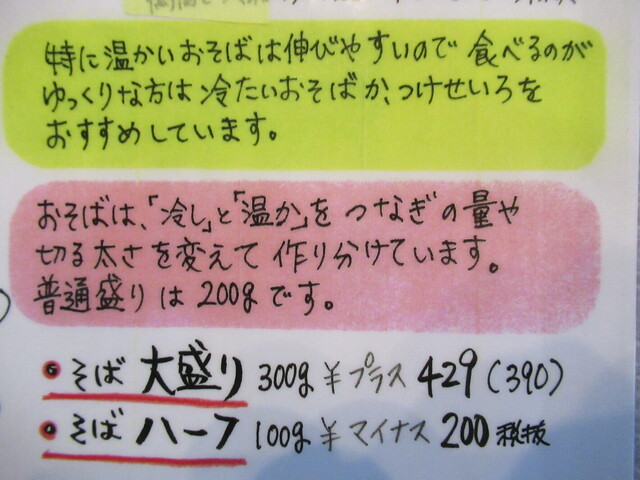 特に温かいおそばは伸びやすいので食べるのが
ゆっくりな方は冷たいおそばか、つけせいろを
おすすめしています。
おそばは、「冷し」と「温か」をつなぎの量や
切る太さを変えて作り分けています。
普通盛りは200gです。
そば大盛り 300g ¥プラス 429(390)
そばハーフ 100g ¥マイナス 200税抜